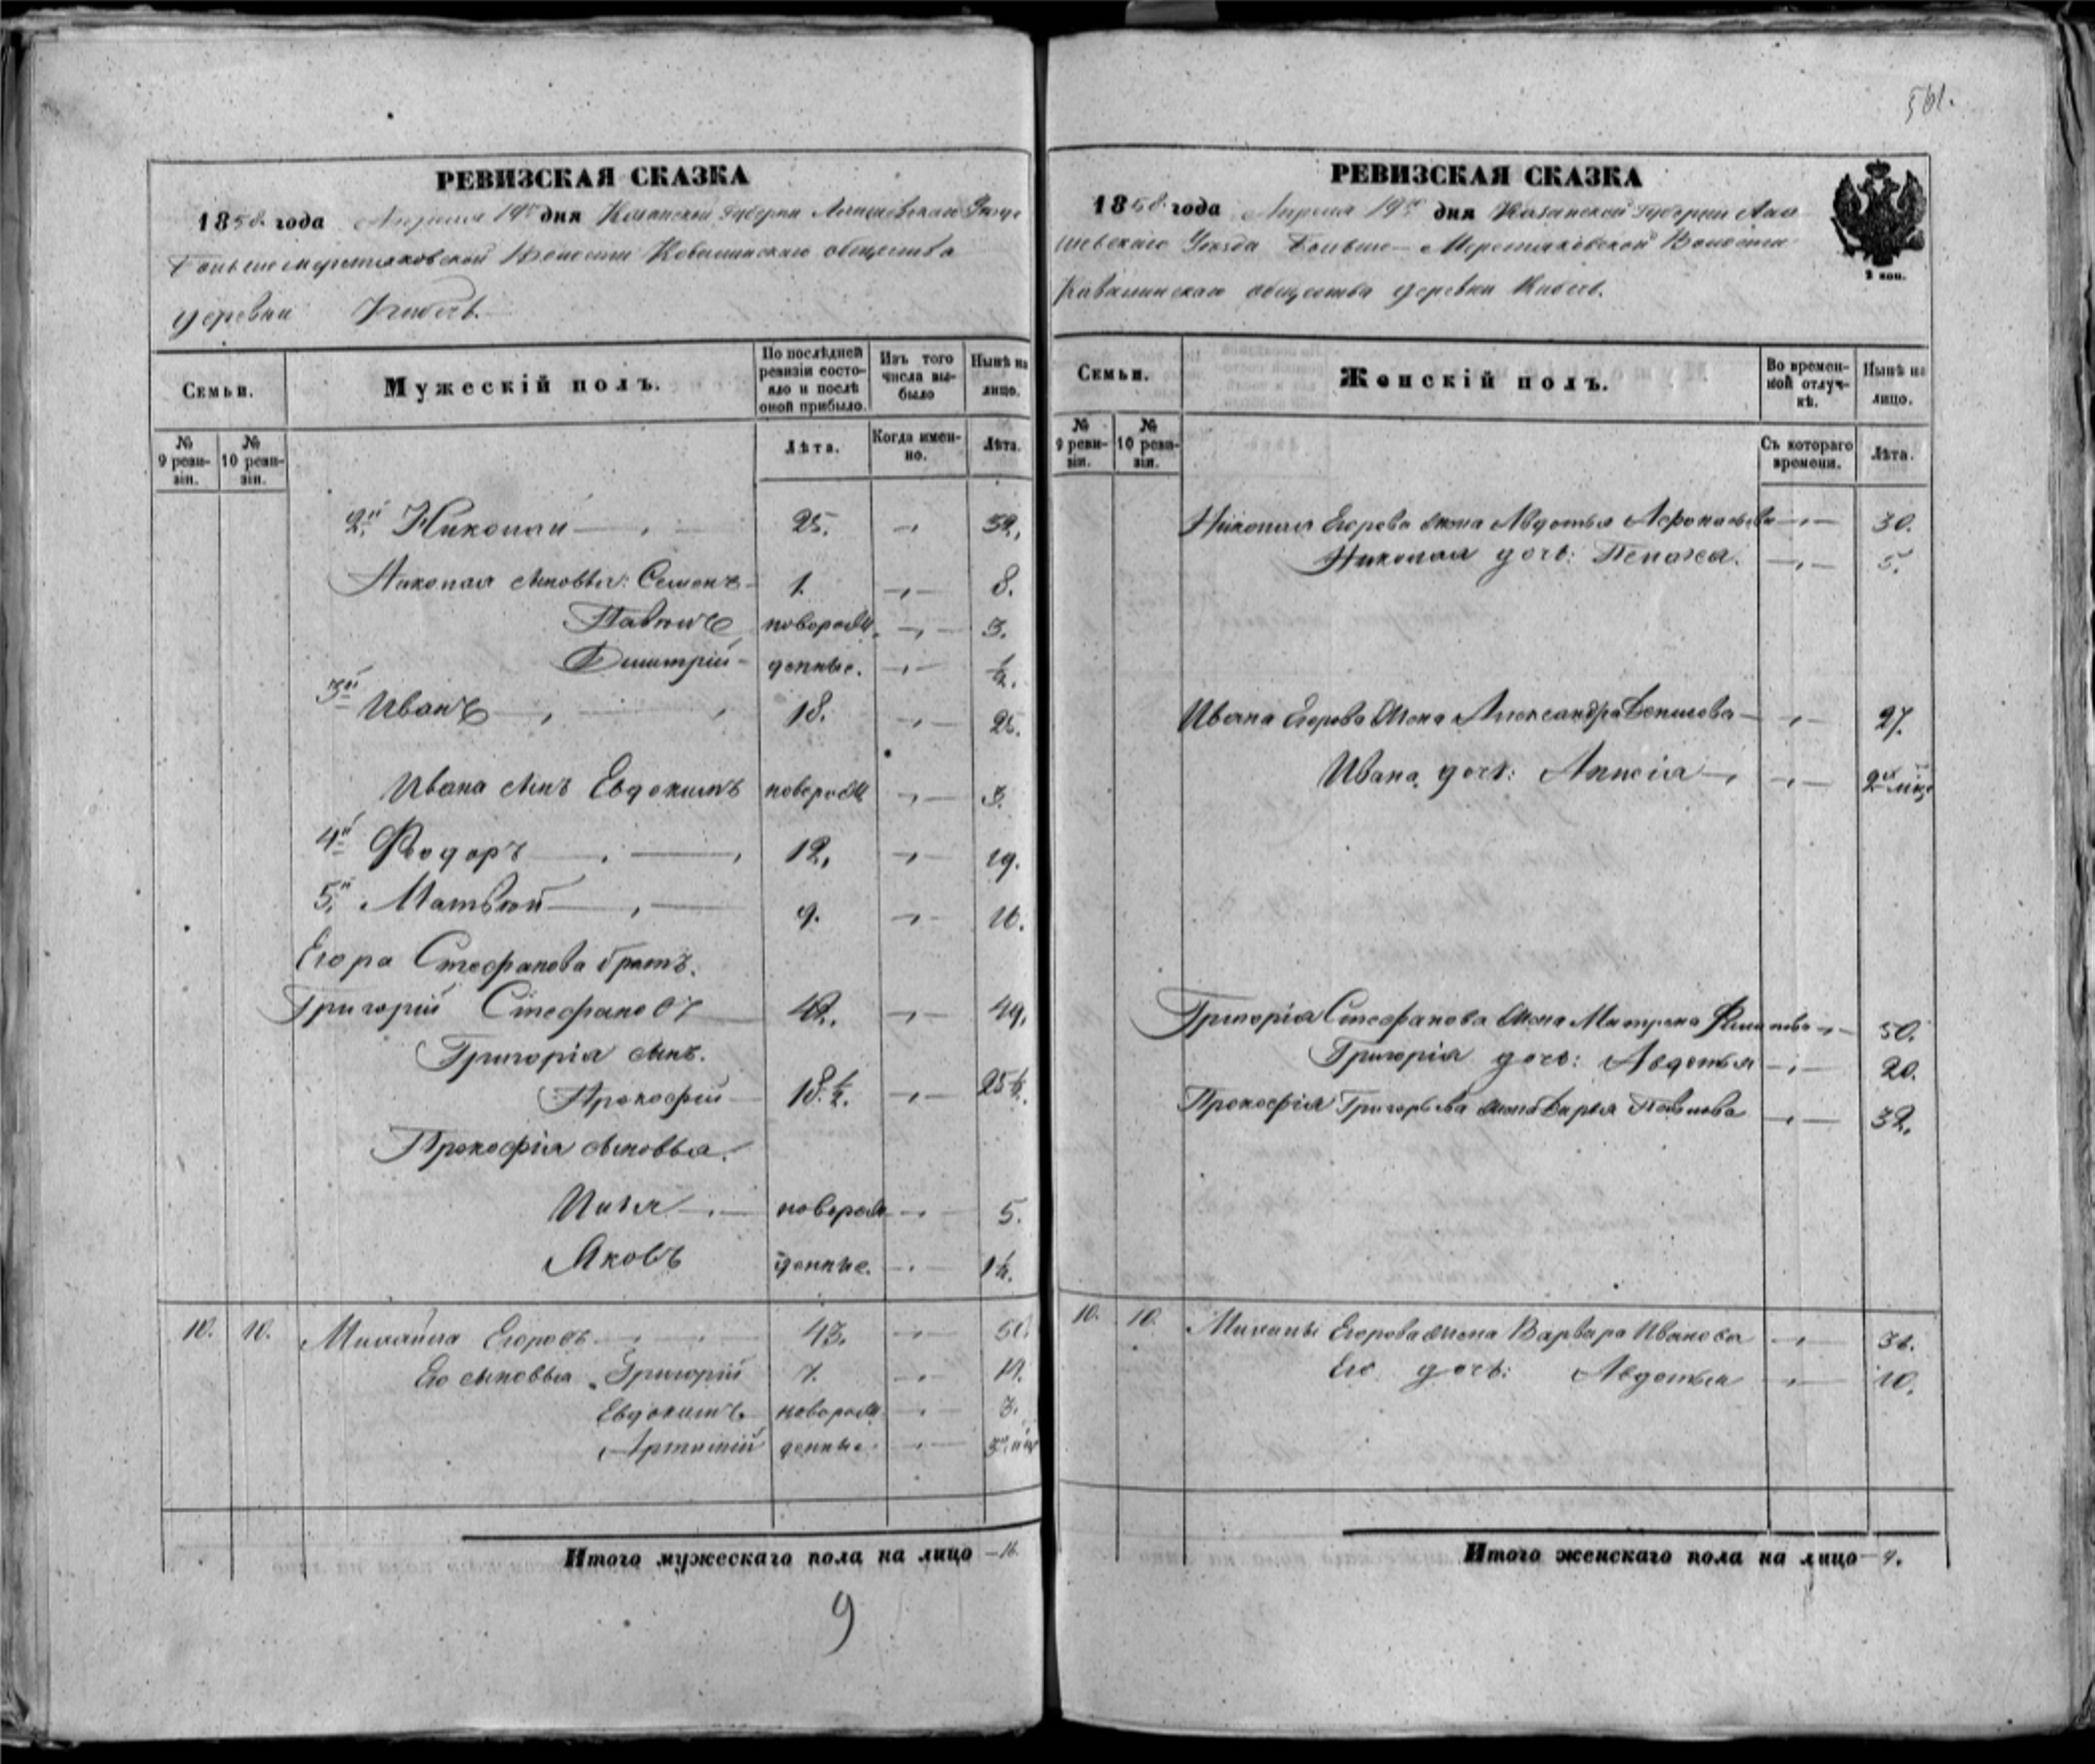 561.
РЕВИЗСКАЯ СКАЗКА
1858 года Апреля 19го дня Казанской Губерніи Лаишевскаго Уезда
Больше меретяковской Волости Ковалинскаго общества
деревни Кибечь.
Семьи.
Мужескій полъ.
По послѣдней ревизіи состояло и послѣ оной прибыло.
Изъ того числа выбыло
Нынѣ на лицо.
№ 9 ревизіи.
№ 10 ревизіи.
Лѣта.
Когда именно.
Лѣта.
2й Николай 25. 32,
Николая сыновья: Семенъ 1. 8.
Павелъ новорож 3.
Дмитрій денные. 1/2.
3й Иванъ 18. 25.
Ивана сынъ Евдокимъ новорож 3.
4й Ѳедоръ 12, 19.
5й Матвей 9. 16.
Егора Стефанова братъ.
Григорій Стефановъ 42. 49.
Григорія сынъ.
Прокофій 18 1/2. 25 1/2.
Прокофія сыновья.
Илья новорож 5.
Яковъ денные. 1 1/2.
10. 10. Михайла Егоровъ 43. 50.
Его сыновья Григорій 7. 14.
Евдокимъ новорож 3.
денные.
Итого мужескаго пола на лицо 16.
9
РЕВИЗСКАЯ СКАЗКА
1858 года Апреля 19го дня Казанской Губерніи Лаи
шевскаго Уезда Больше-Меретяковской Волости
Ковалинскаго общества деревни Кибечь.
2 коп.
Семьи.
Женскій полъ.
Во временной отлучкѣ.
Нынѣ на лицо.
№ 9 ревизіи.
№ 10 ревизіи.
Съ котораго времени.
Лѣта.
Николая Егорова жена Авдотья 30.
Николая дочь: Пелагея. 5.
Ивана Егорова жена Александра Денисова 27.
Ивана дочь: 2х міц
Григорія Стефанова жена Матрена 50.
Григорія дочь: Авдотья 20.
Прокофія Григорьева жена Дарья Павлова 32.
10. 10. Михаилы Егорова жена Варвара Иванова
Его дочь: Авдотья 10.
Итого женскаго пола на лицо 9.